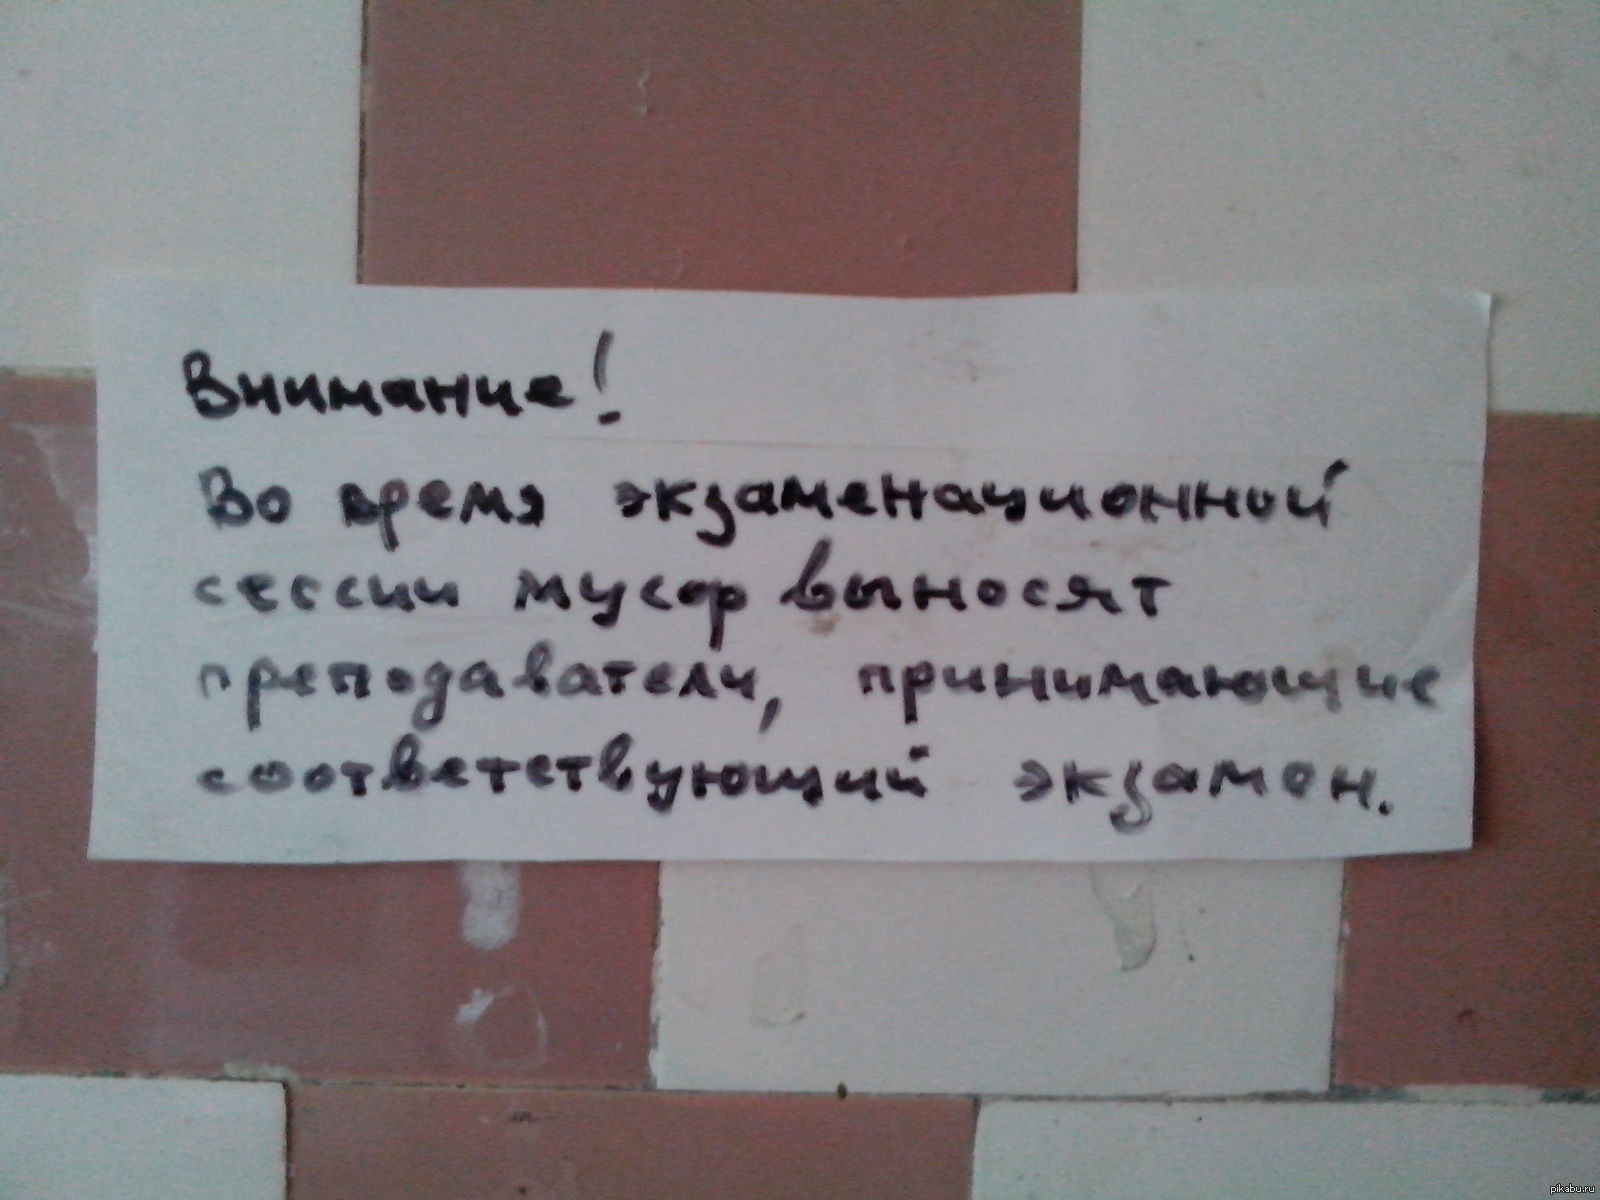 Внимание!
Во время экзаменационной
сессии мусор выносят
преподаватели, принимающие
соответствующий экзамен.
pikabu.ru